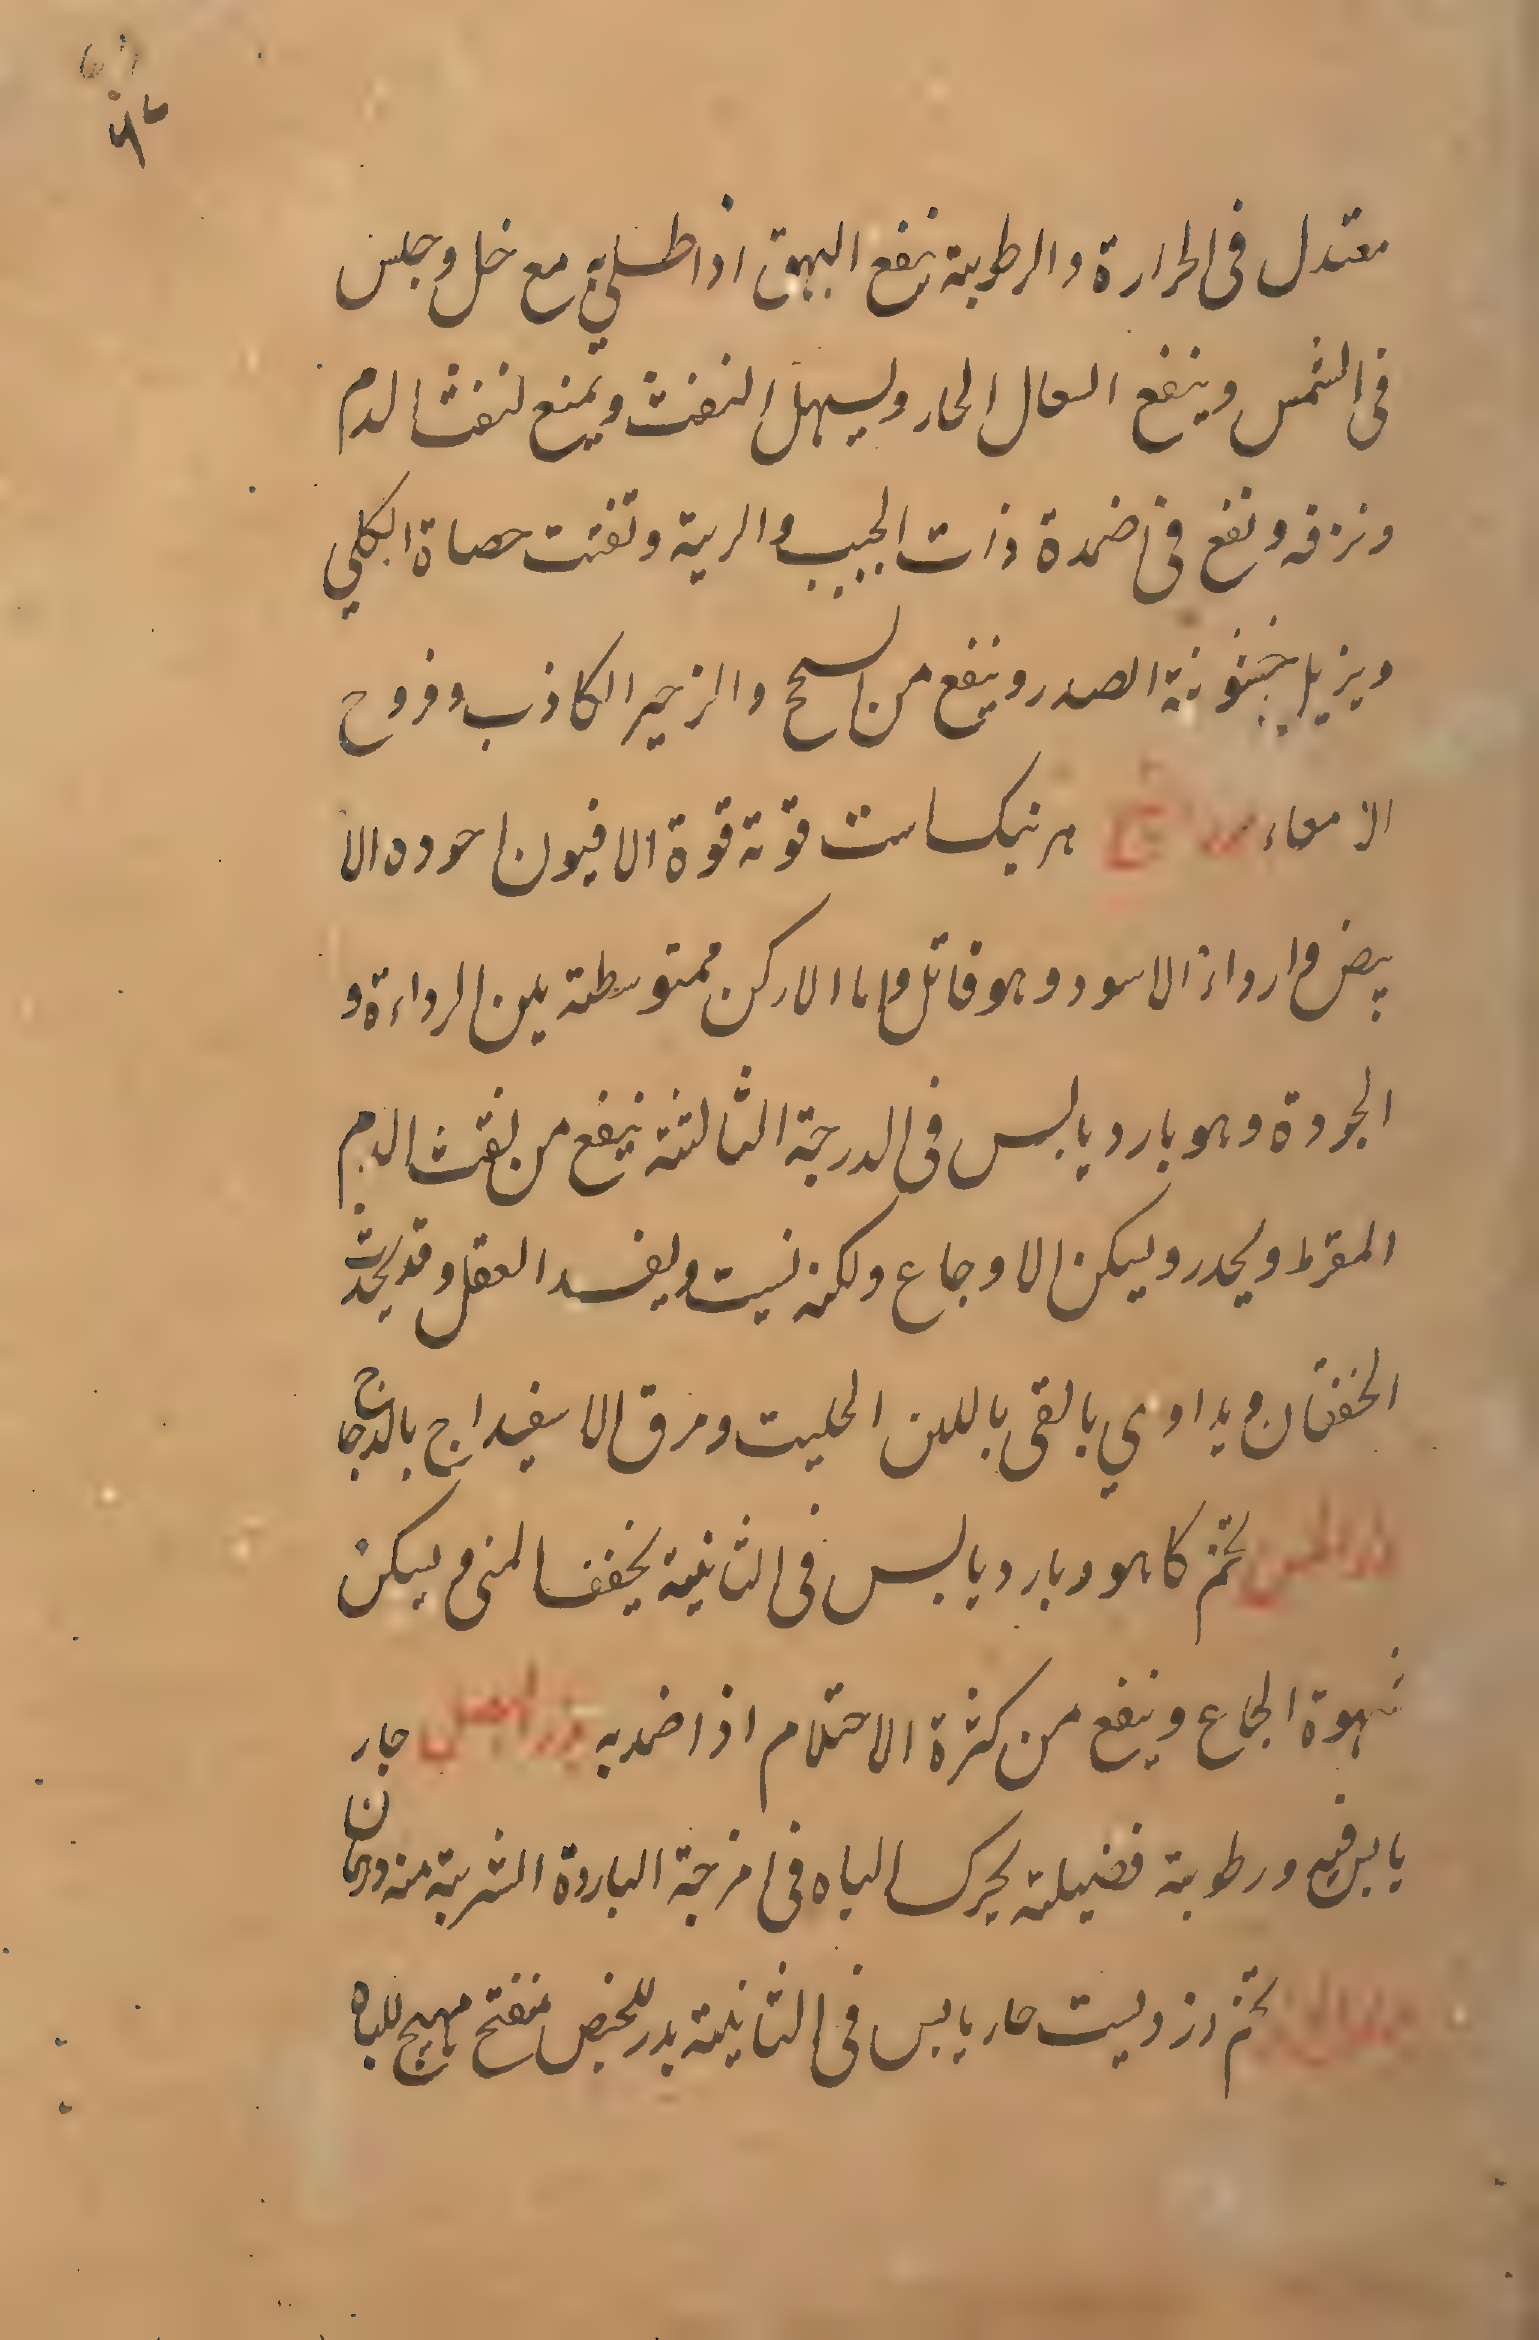 معتدل فى الحرارة والرطوبة ينفع البهق اذا طلي به مع خل وجلس
فى الشمس وينفع السعال الحار ويسهل النفث ويمنع لنفث الدم
ونزفه ونفع فى اضمدة ذات الجنب والرية وتفتت حصاة الكلي
ويزيل خشونة الصدر وينفع من السحج والزحير الكاذب وقروح
الامعاء قوته قوة الافيون اجوده الا
بيض وارداءة الاسود وهو قاتل واما الاركن ممتوسطة بين الرداءة و
الجودة وهو بارد يابس فى الدرجة الثالثة ينفع من نفث الدم
المفرط ويخدر ويسكن الاوجاع ولكنه نسيت ويفسد العقل وقد يحدث
الخفقان ويداوي بالقى باللبن الحليب ومرق الاسفيداج بالدجاج
بزر الخس تخم كاهو وبارد يابس فى الثانية يجفف المنى ويسكن
شهوة الجماع وينفع من كثرة الاحتلام اذا ضمد به بزر البصل حار
يابس فيه ورطوبة فضيلة يحرك الباه فى امزجة الباردة الشربة منه درهمان
تخم حار يابس فى الثانية يدر للحيض مفتح مهيج للباه